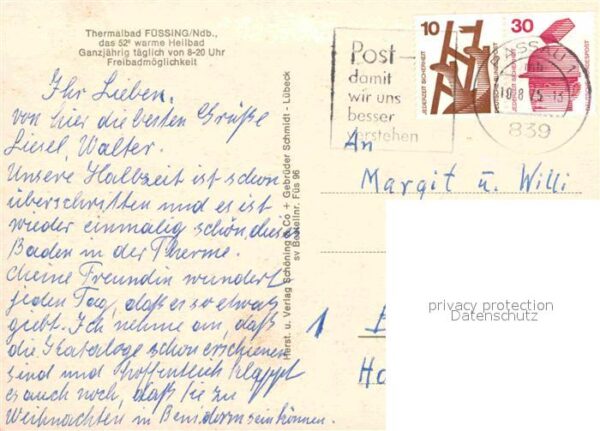 Thermalbad FÜSSING/Ndb.,
das 52° warme Heilbad
Ganzjährig täglich von 8-20 Uhr
Freibadmöglichkeit
Ihr Lieben,
von hier die besten Grüße
Liesel, Walter.
Unsere Halbzeit ist schon
überschritten und es ist
wieder einmalig schön dieses
Baden in der Therme.
Meine Freundin wundert
jeden Tag, daß es so etwas
giebt. Ich nehme an, daß
die Kataloge schon erschienen
sind und hoffentlich klappt
es auch noch, daß Sie zu
Weihnachten in Benidorm sein können.
Herst. u. Verlag Schöning & Co + Gebrüder Schmidt - Lübeck
sv Bestellnr. Füs 96
Post
damit
wir uns
besser
verstehen
10
JEDERZEIT SICHERHEIT
30
JEDERZEIT SICHERHEIT
PASSAU 1
839
An
Margit u. Willi
privacy protection
Datenschutz
1